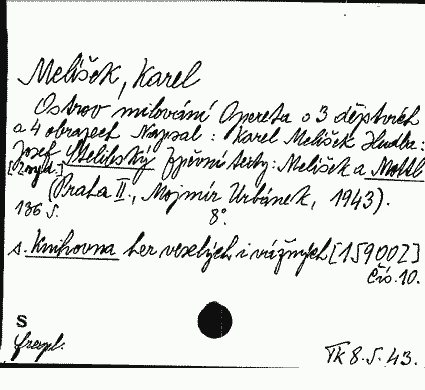 Melíšek, Karel
Ostrov milování Opereta o 3 dějstvích
a 4 obrazech Napsal: Karel Melíšek Hudba:
Josef Stelibský Zpěvní texty: Melíšek a Mottl
(Praha II., Mojmír Urbánek, 1943).
136 s. 8°.
s. Knihovna her veselých i vážných [15900Z]
Čís. 10.
S
TK 8.5.43.